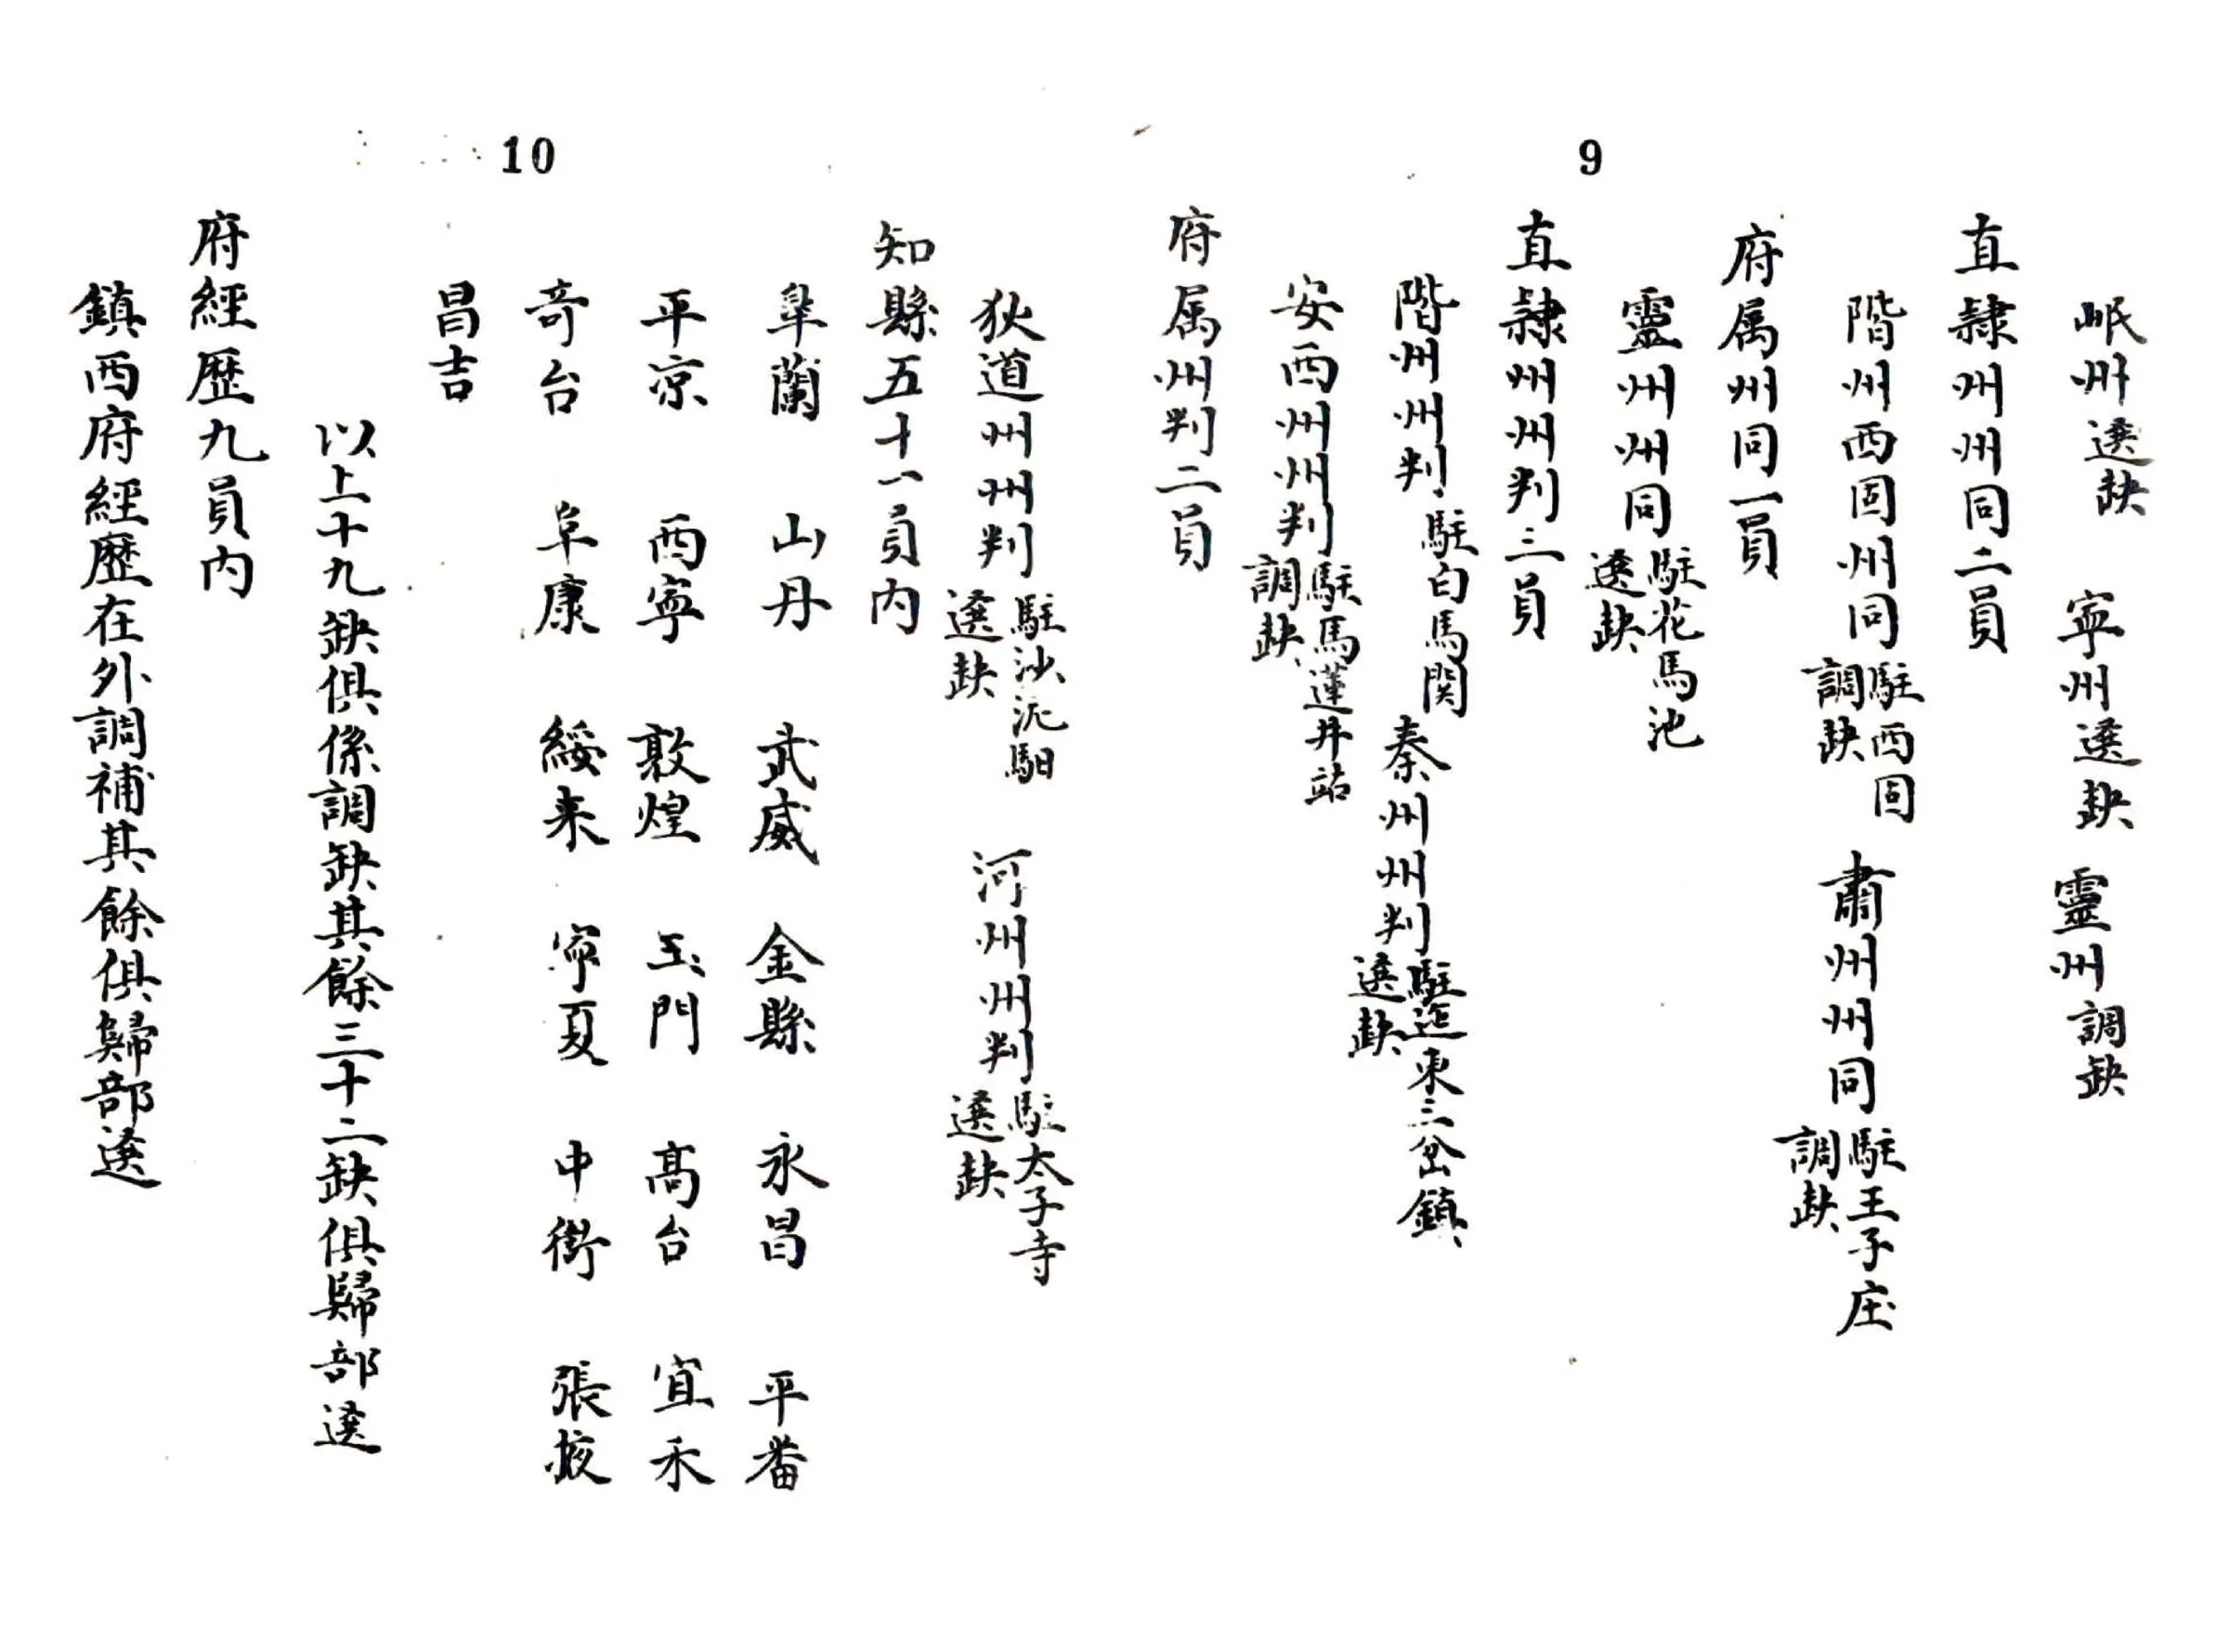 9
岷州選缺 寧州選缺 靈州調缺
直隸州州同二員
階州西固州同駐西固調缺 肅州州同駐王子庄調缺
府属州同一員
靈州州同駐花馬池選缺
直隸州州判三員
階州州判駐白馬関 秦州州判駐迤東三岔鎮選缺
安西州州判駐馬蓮井站調缺
府属州判二員
10
狄道州州判駐沙泥驲選缺 河州州判駐太子寺選缺
知縣五十一員内
皐蘭 山丹 武威 金縣 永昌 平番
平凉 西寧 敦煌 玉門 髙台 宜禾
竒台 阜康 綏来 寧夏 中衛 張掖
昌吉
以上十九缺俱係調缺其餘三十二缺俱歸部選
府經歷九員内
鎮西府經歷在外調補其餘俱歸部選